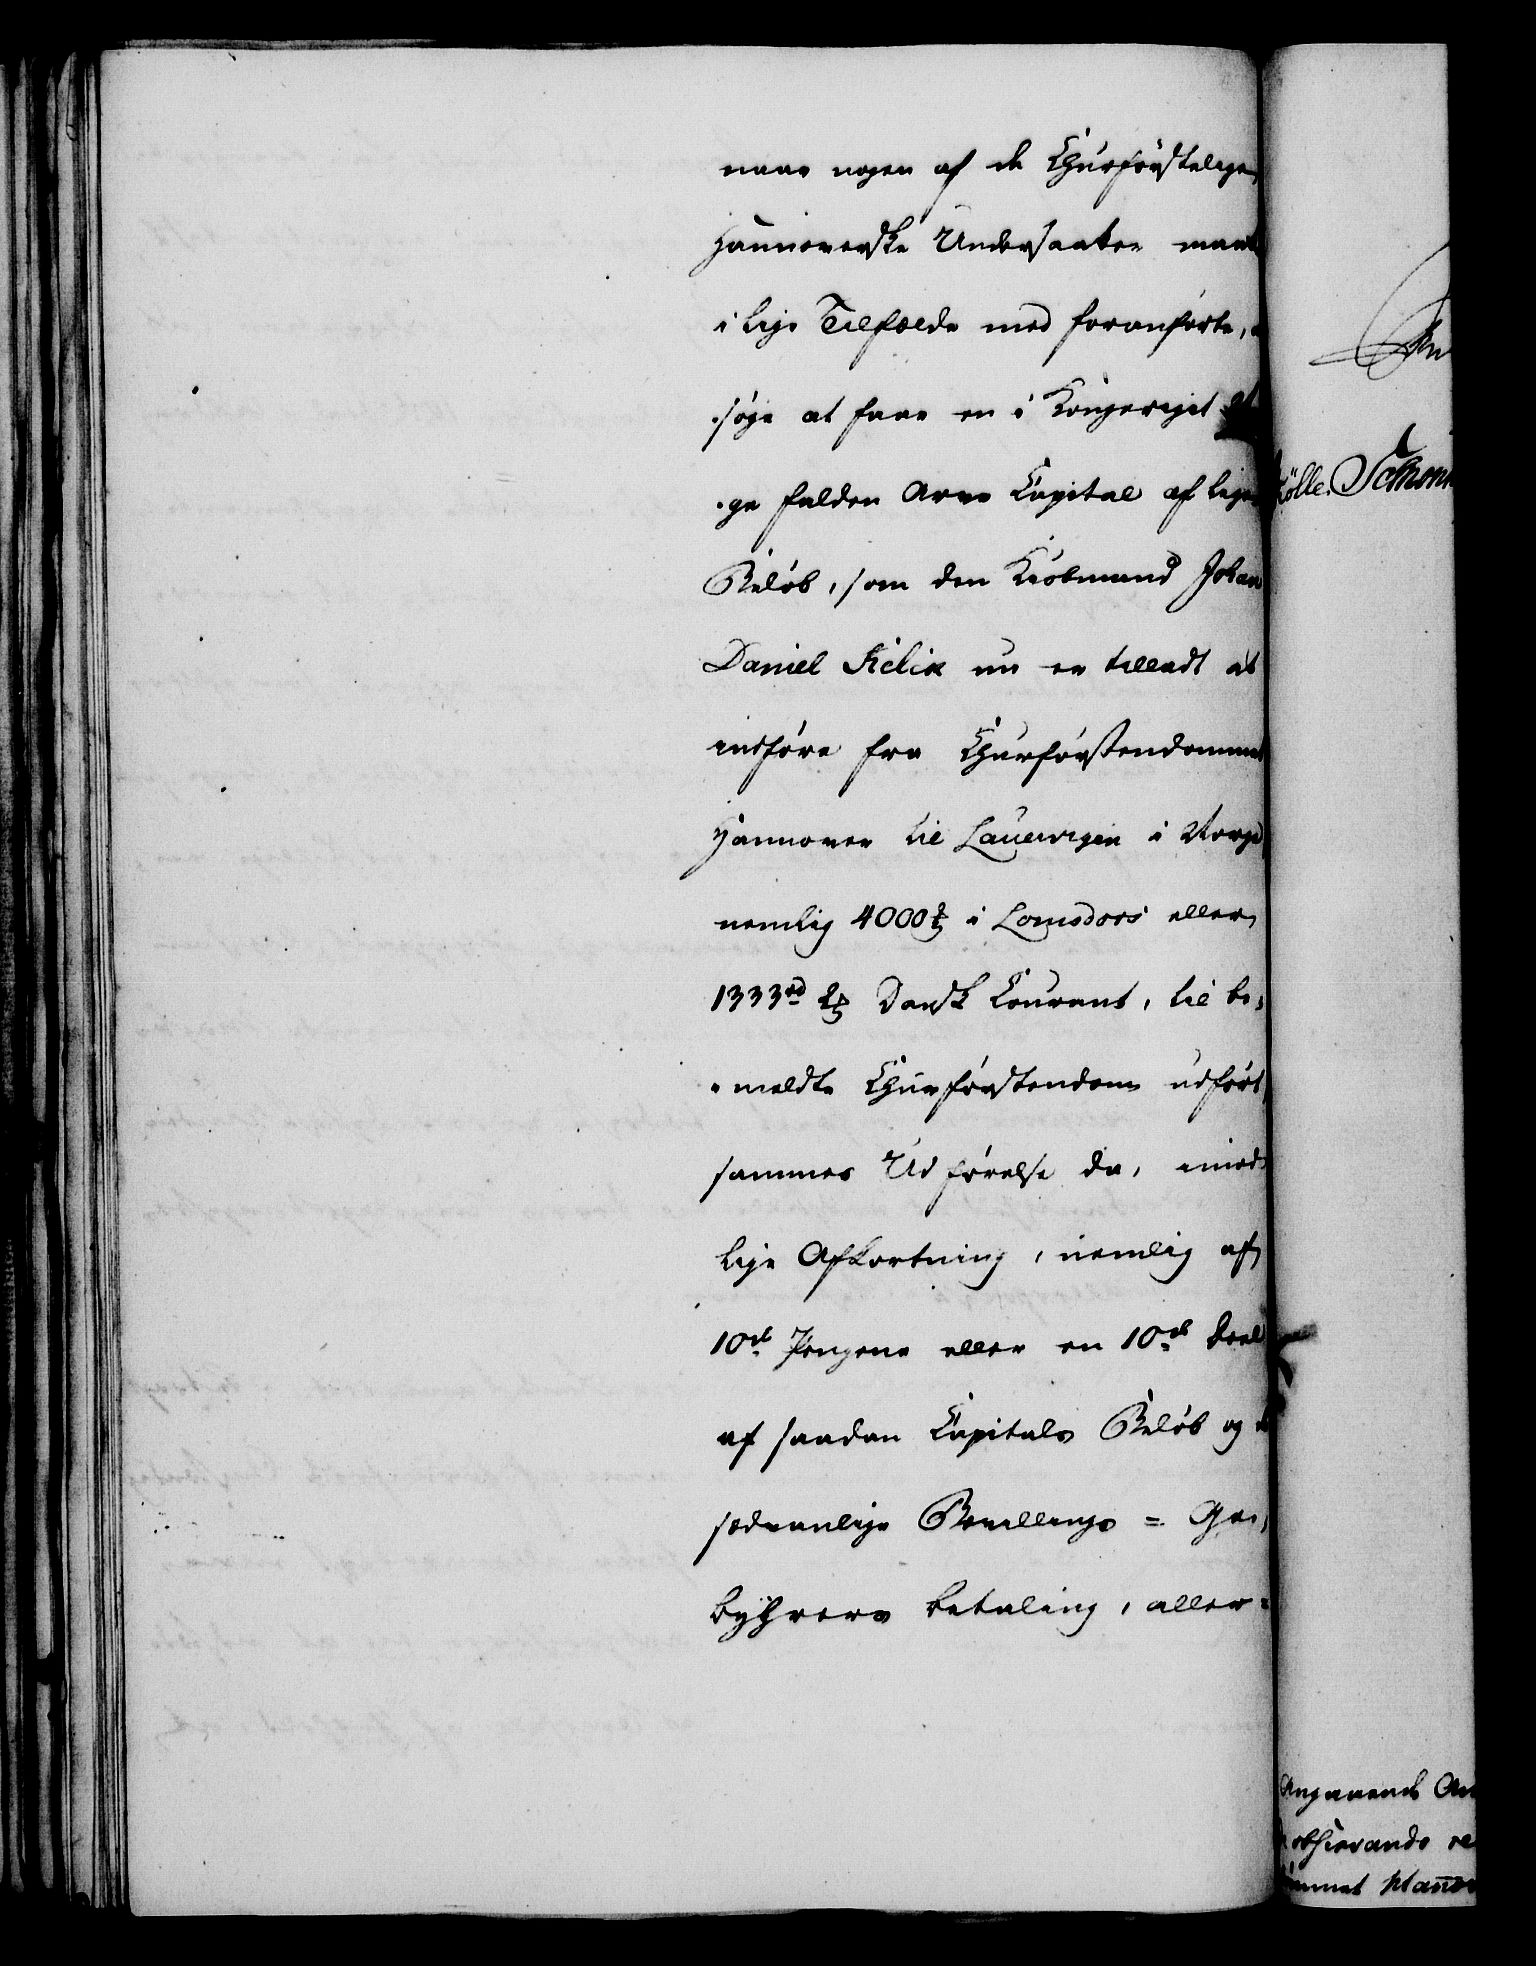 naar nogen af de Churförstelige
Hannoverske Undersaatter maatte
i lige Tilfælde med foranförte,
söge at faae en i Kongeriget
ge falden Arve Capital af lige
Belöb, som den Kiöbmand Johan
Daniel Kelik nu er tilladt at
indföre fra Churförstendommet
Hannover til Lauervigen i Norge
nemlig 4000 rd i Louisdors eller
1333rd 2 ß Dansk Courant, til be-
meldte Churförstendom udfört,
sammes Udförelse da, imod
lige Afkortning, nemlig af
10de Pengene eller en 10de Deel
af saadan Capitals Belöb og
sædvanlige Bevillings = Ge-
byhrers betaling, aller-
Kölle. Schon
Angaaende
Hannov